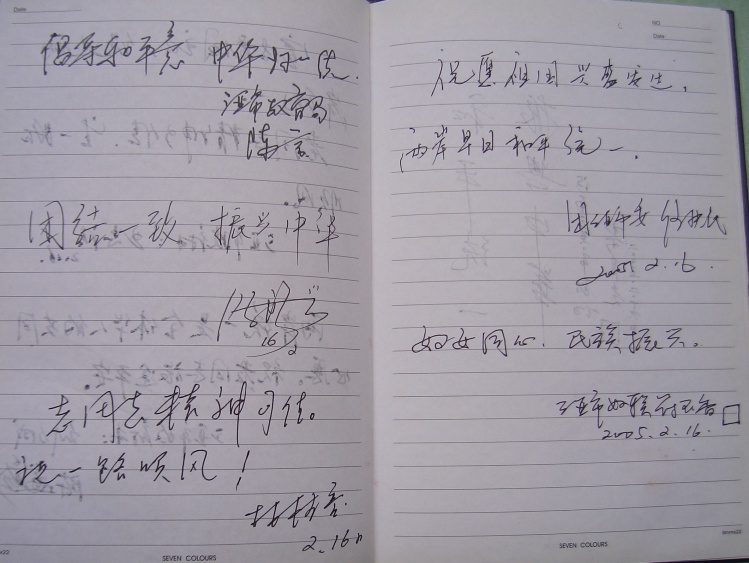 Date
倡导和平意 中华归一统.
团结一致 振兴中华
16/2
志同志精神可佳。
祝一路顺风!
2.16
SEVEN COLOURS
NO.
Date
祝愿祖国兴盛发达,
两岸早日和平统一.
2005.2.16.
妇女同心. 民族振兴。
2005.2.16.
SEVEN COLOURS